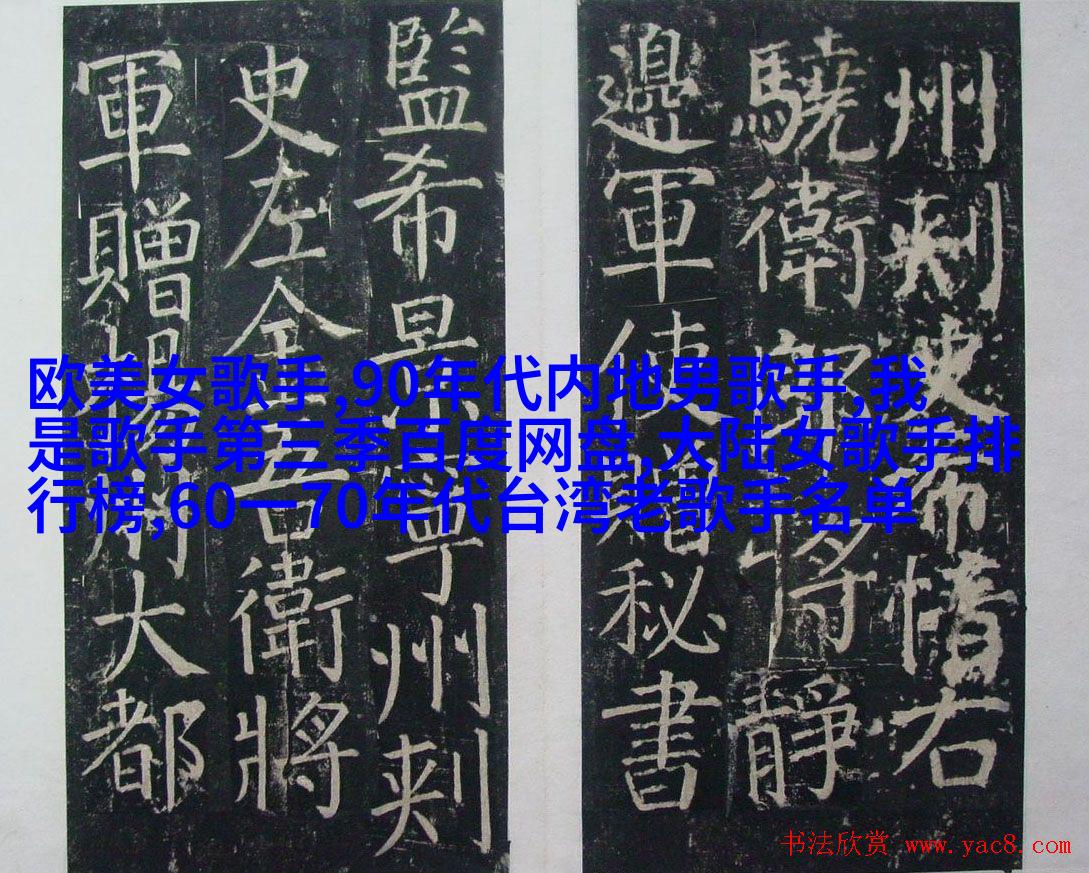 州刺史希右
驍衛郎將靜
邊軍使贈秘書
監希景寧州刺
史左金吾衛將
軍贈州大都
欧美女歌手,90年代内地男歌手,我
是歌手第三季百度网盘,大陆女歌手排
行榜,60一70年代台湾老歌手名单
书法欣赏 www.yac8.com